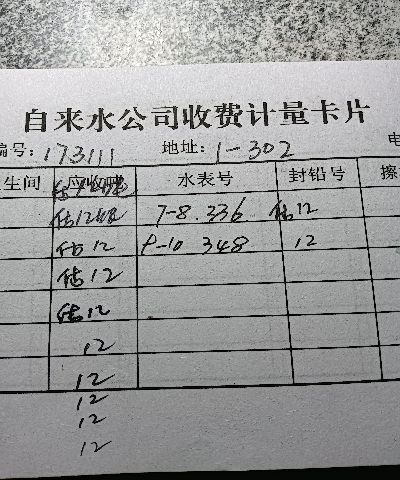 自来水公司收费计量卡片
编号: 173111 地址: 1-302 电
生间 应收吨 水表号 封铅号 擦
估12 7-8. 336 估12
估12 9-10 348 12
估12
估12
12
12
12
12
12